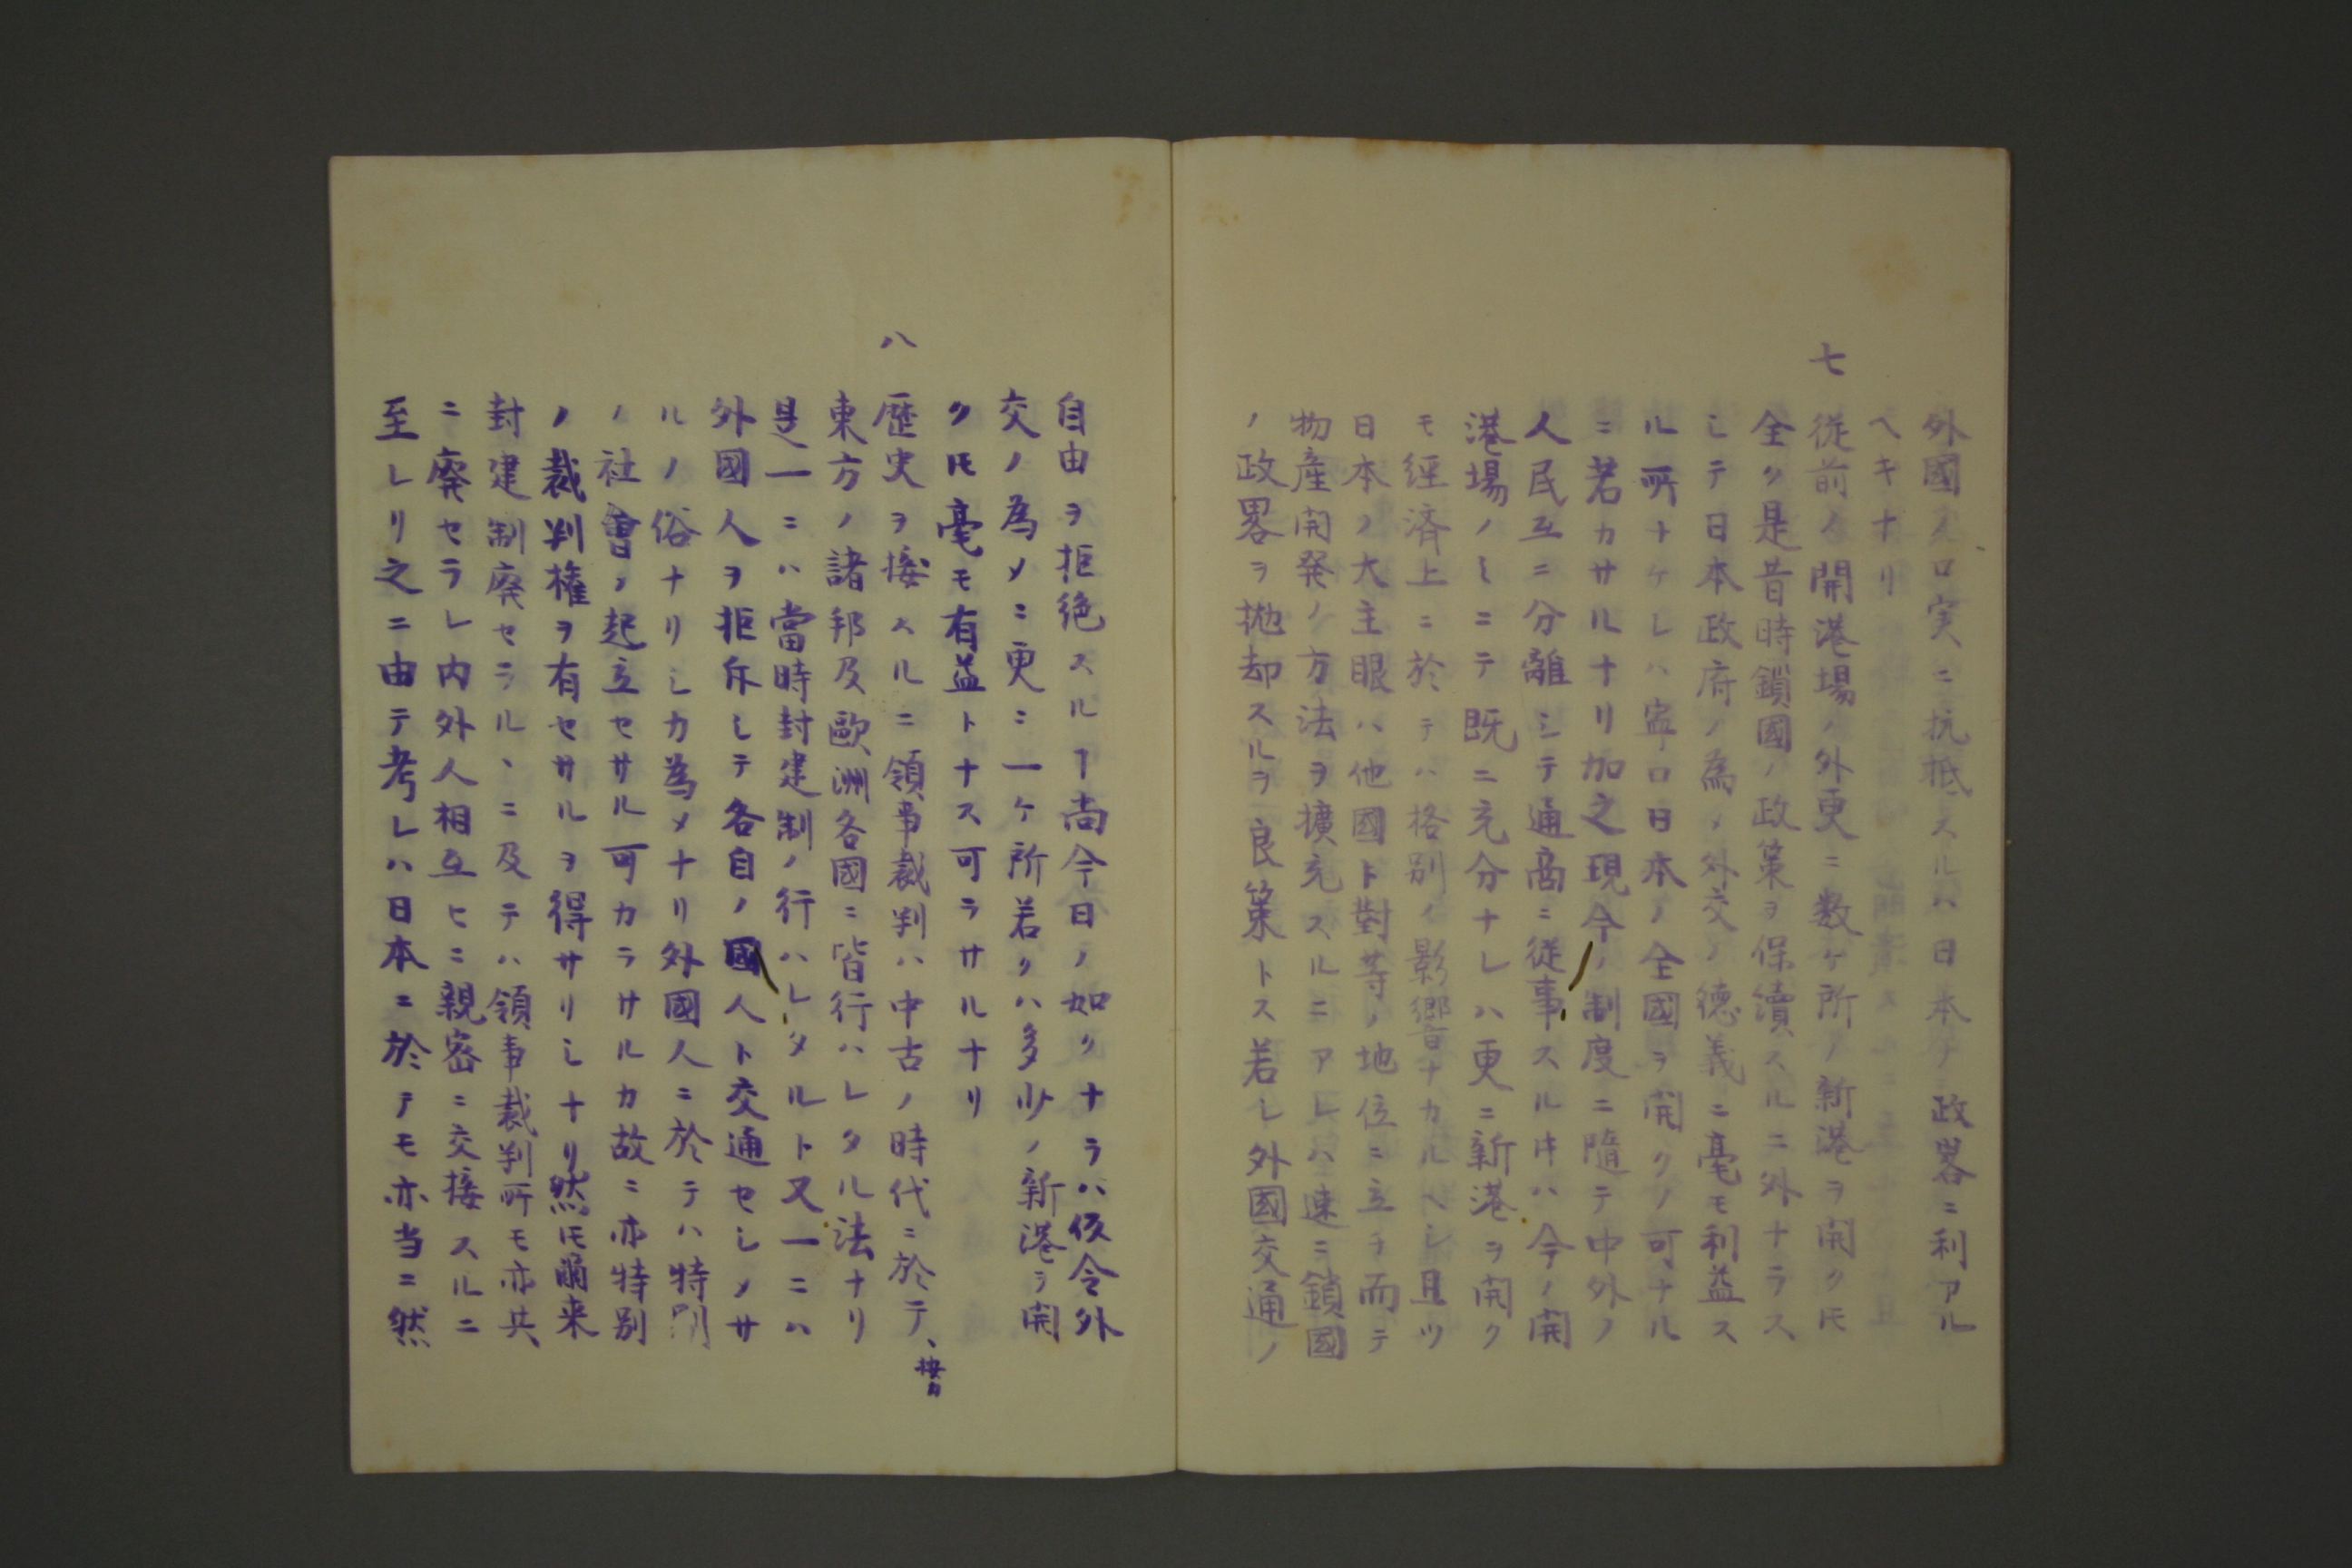 外國ノ口実ニ抗抵スルハ日本ノ政畧ニ利アル
ヘキナリ
七
従前ノ開港場ノ外更ニ数ケ所ノ新港ヲ開クモ
全ク是昔時鎖國ノ政策ヲ保續スルニ外ナラス
シテ日本政府ノ為メ外交ノ徳義ニ毫モ利益ス
ル所ナケレハ寧ロ日本ノ全國ヲ開クノ可ナル
ニ若カサルナリ加之現今ノ制度ニ隨テ中外ノ
人民互ニ分離シテ通商ニ従事スル中ハ今ノ開
港場ノミニテ既ニ充分ナレハ更ニ新港ヲ開ク
モ經済上ニ於テハ格別ノ影響ナカルヘシ且ツ
日本ノ大主眼ハ他國ト對等ノ地位ニ立チ而テ
物産開発ノ方法ヲ擴充スルニアレハ速ニ鎖國
ノ政畧ヲ拋却スルヲ良策トス若シ外國交通ノ
自由ヲ拒絶スルヿ尚今日ノ如クナラハ仮令外
交ノ為メニ更ニ一ケ所若クハ多少ノ新港ヲ開
クモ毫モ有益トナス可ラサルナリ
八
歴史ヲ接スルニ領事裁判ハ中古ノ時代ニ於テ、
按カ
東方ノ諸邦及歐洲各國ニ皆行ハレタル法ナリ
是一ニハ當時封建制ノ行ハレタルト又一ニハ
外國人ヲ拒斥シテ各自ノ國人ト交通セシメサ
ルノ俗ナリシカ為メナリ外國人ニ於テハ特別
ノ社會ノ起立セサル可カラサルカ故ニ亦特別
ノ裁判権ヲ有セサルヲ得サリシナリ然モ爾来
封建制廃セラルヽニ及テハ領事裁判所モ亦共
ニ廃セラレ内外人相互ヒニ親密ニ交接スルニ
至レリ之ニ由テ考レハ日本ニ於テモ亦当ニ然